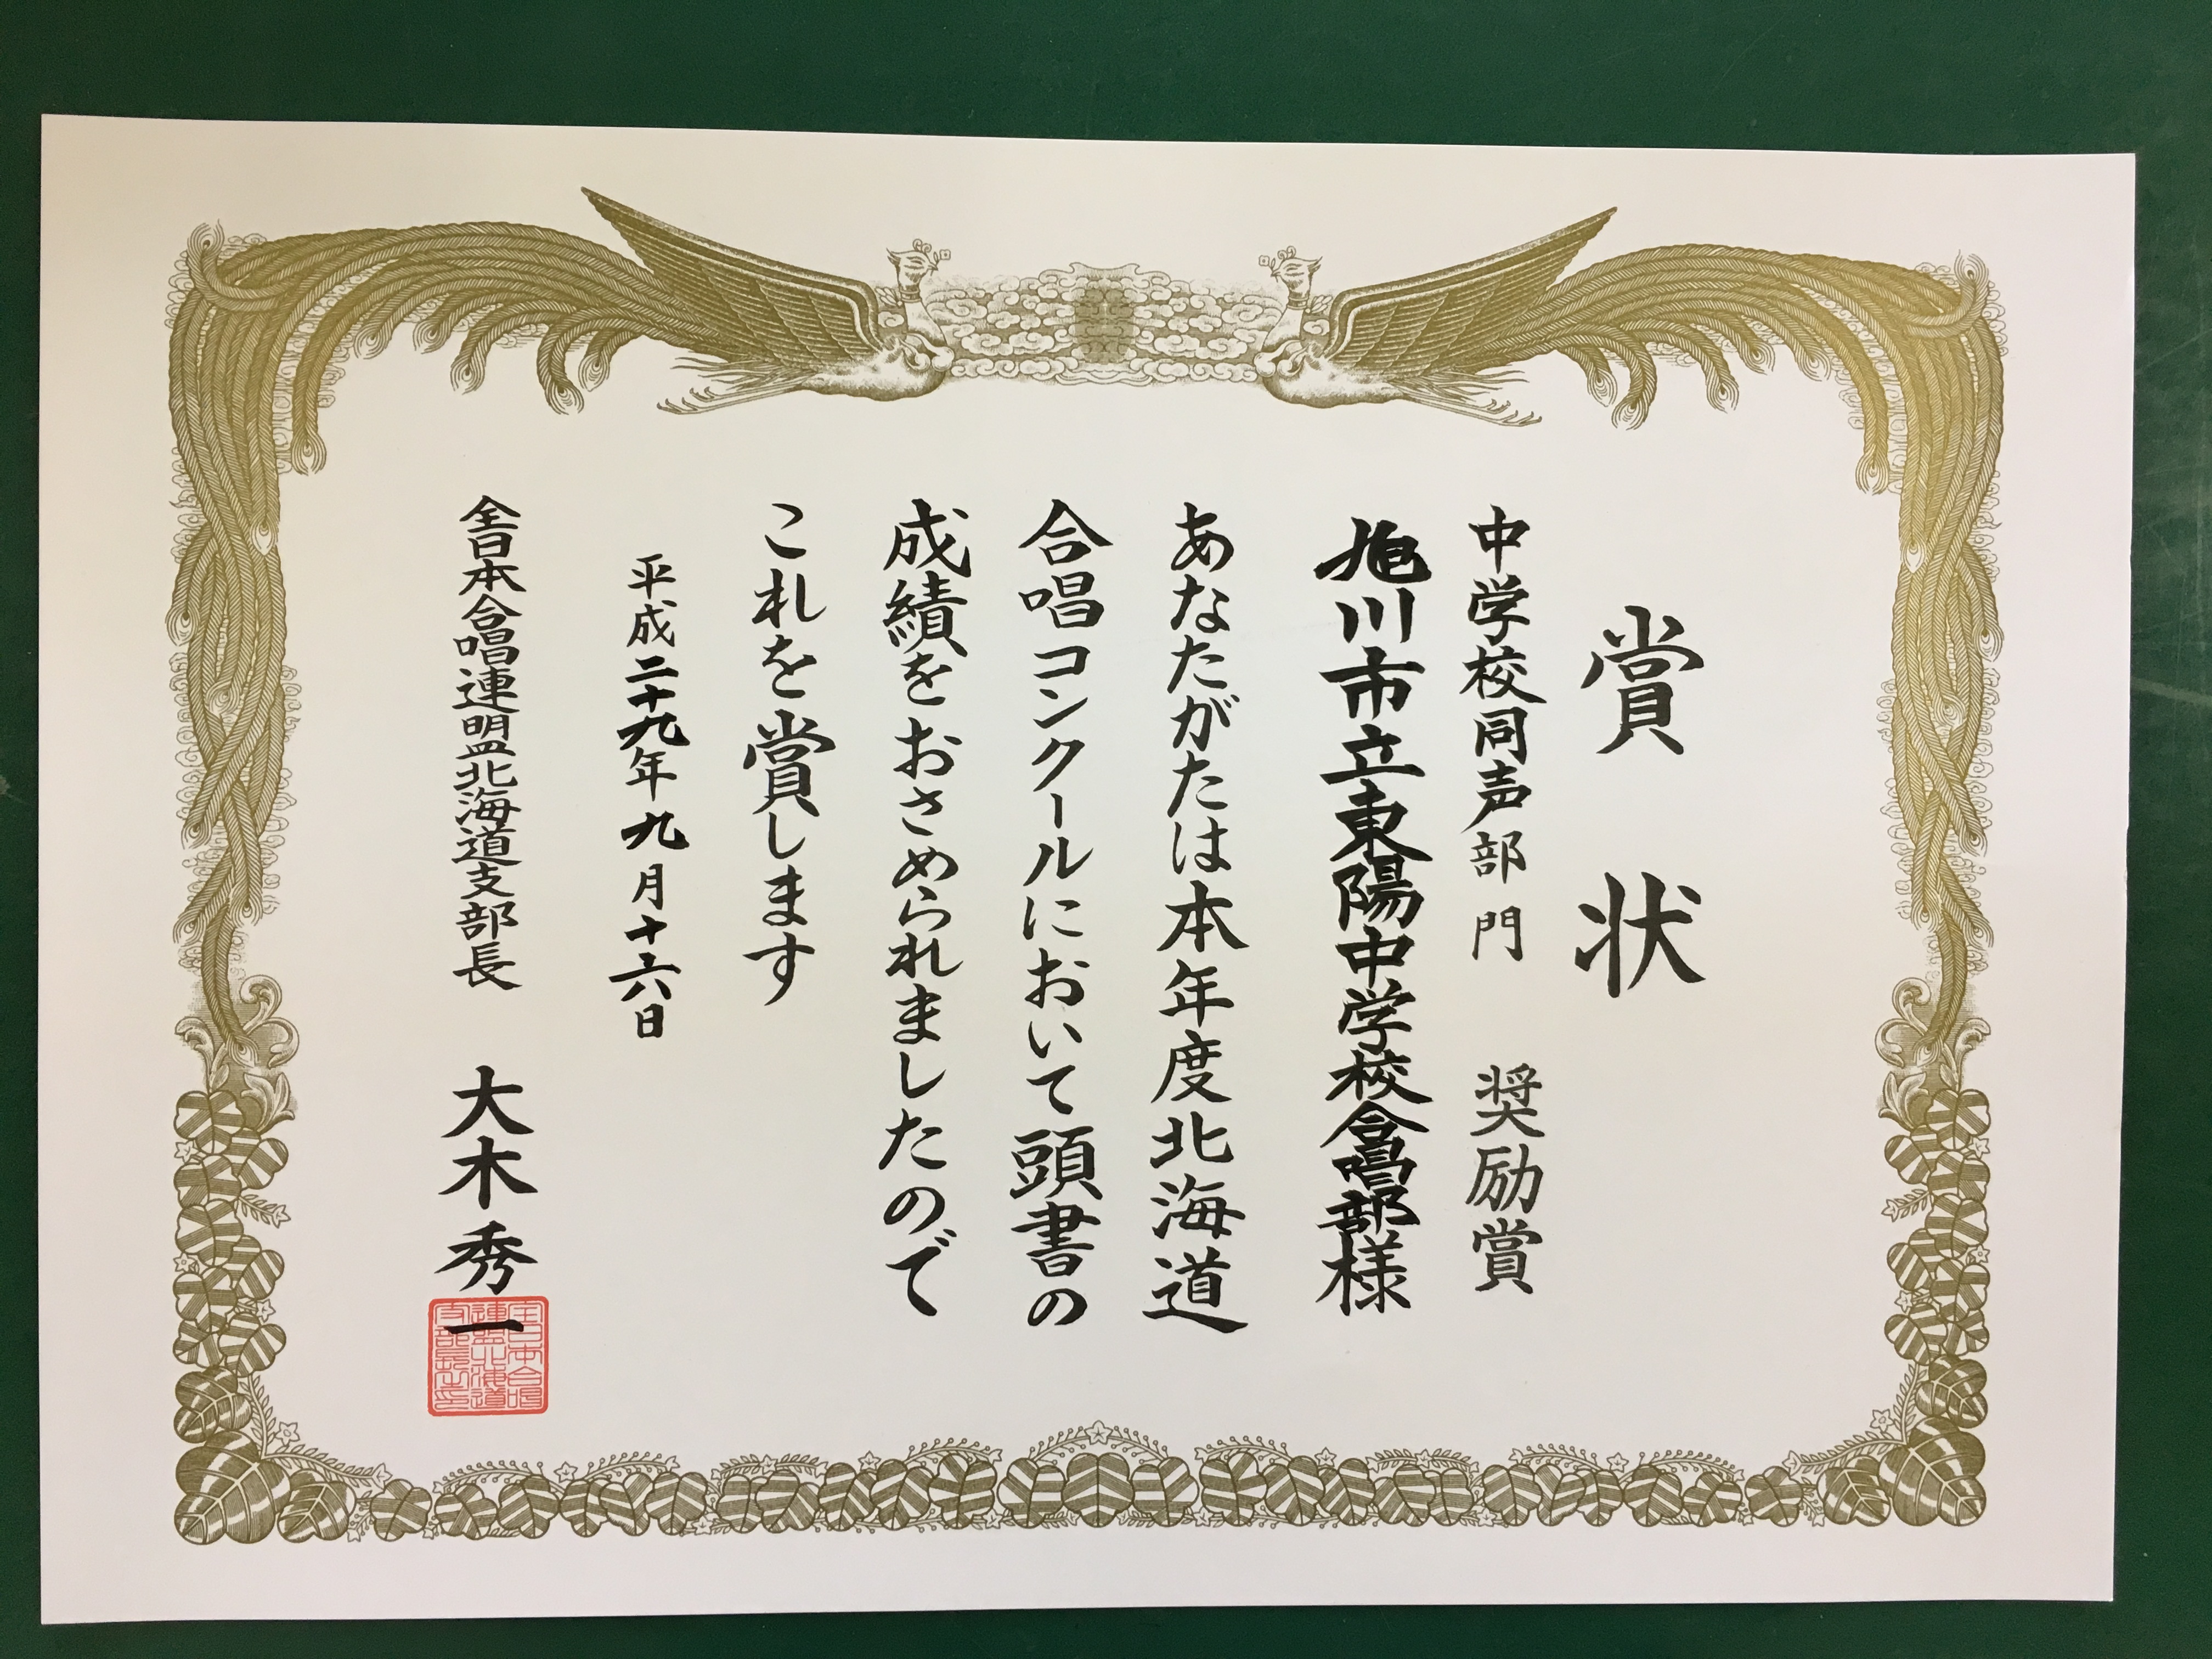 賞状
中学校同声部門 奨励賞
旭川市立東陽中学校合唱部様
あなたがたは本年度北海道
合唱コンクールにおいて頭書の
成績をおさめられましたので
これを賞します
平成二十九年九月十六日
全日本合唱連盟北海道支部長 大木秀一
全日本合唱
連盟北海道
支部長之印